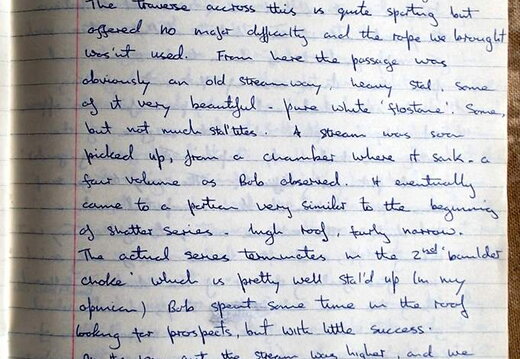 The traverse accross this is quite sporting but
offered no major difficulty and the rope we brought
was'nt used. From here the passage was
obviously an old streamway, heavy stal, some
of it very beautiful - pure white 'flostone'. Some,
but not much stal'tites. A stream was soon
picked up, from a chamber where it sank - a
fair volume as Bob observed. It eventually
came to a portion very similar to the beginning
of shatter series - high roof, fairly narrow.
The actual series terminates in the 2nd 'boulder
choke' which is pretty well stal'd up (in my
opinion) Bob spent some time in the roof
looking for prospects, but with little success.
the stream was higher and we